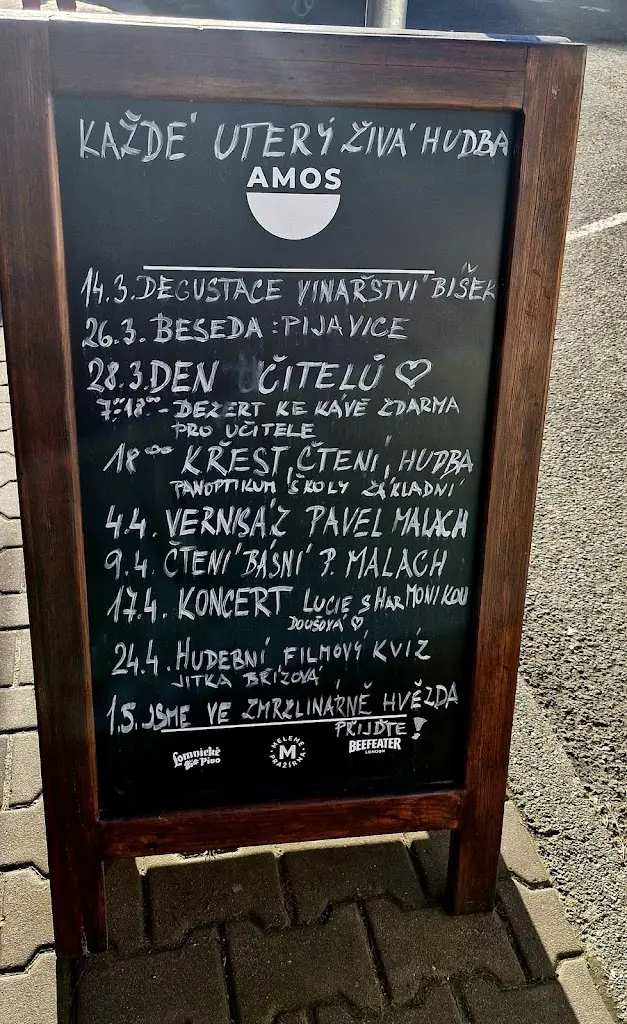 KAŽDÉ ÚTERÝ ŽIVÁ HUDBA
AMOS
14.3. DEGUSTACE VINAŘSTVÍ BÍŠEK
26.3. BESEDA : PIJAVICE
28.3. DEN UČITELŮ ♡
7⁰⁰-18⁰⁰ - DEZERT KE KÁVĚ ZDARMA
PRO UČITELE
18⁰⁰ KŘEST, ČTENÍ, HUDBA
PANOPTIKUM ŠKOLY ZÁKLADNÍ
4.4. VERNISÁŽ PAVEL MALACH
9.4. ČTENÍ BÁSNÍ P. MALACH
17.4. KONCERT LUCIE S HARMONIKOU
DOUŠOVÁ ♡
24.4. HUDEBNÍ FILMOVÝ KVÍZ
JITKA BŘÍZOVÁ
1.5. JSME VE ZMRZLINÁRNĚ HVĚZDA
PŘIJĎTE!
Lomnické Pivo
MELEME M PRAŽÍRNA
BEEFEATER
LONDON